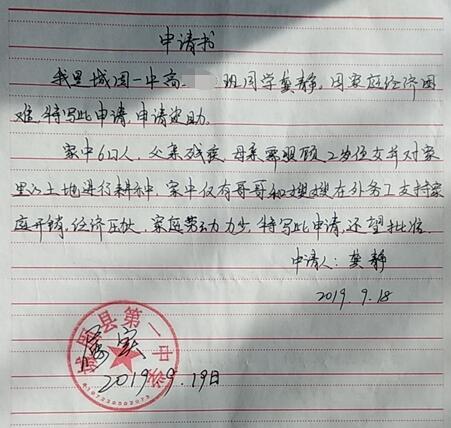 申请书
我是城固一中高 班同学龚静,因家庭经济困
难,特写此申请,申请资助。
家中6口人,父亲残疾,母亲需照顾2岁侄女并对家
里的土地进行耕种,家中仅有哥哥和嫂嫂在外务工支持家
庭开销,经济压力大,家庭劳动力少,特写此申请,还望批准。
申请人:龚静
2019.9.18
县第一中
属实
2019.9.19日
6107220002023